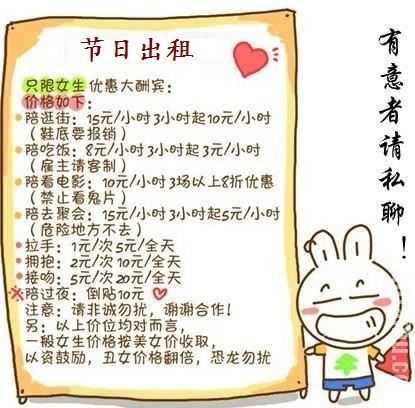 节日出租
只限女生优惠大酬宾：
价格如下：
•陪逛街：15元/小时3小时起10元/小时
（鞋底要报销）
•陪吃饭：8元/小时3小时起3元/小时
（雇主请客制）
•陪看电影：10元/小时3场以上8折优惠
（禁止看鬼片）
•陪去聚会：15元/小时3小时起5元/小时
（危险地方不去）
•拉手：1元/次5元/全天
•拥抱：2元/次10元/全天
•接吻：5元/次20元/全天
※陪过夜：倒贴10元
注意：请非诚勿扰，谢谢合作！
另：以上价位均对而言，
一般女生价格按美女价收取，
以资鼓励，丑女价格翻倍，恐龙勿扰
有意者请私聊！